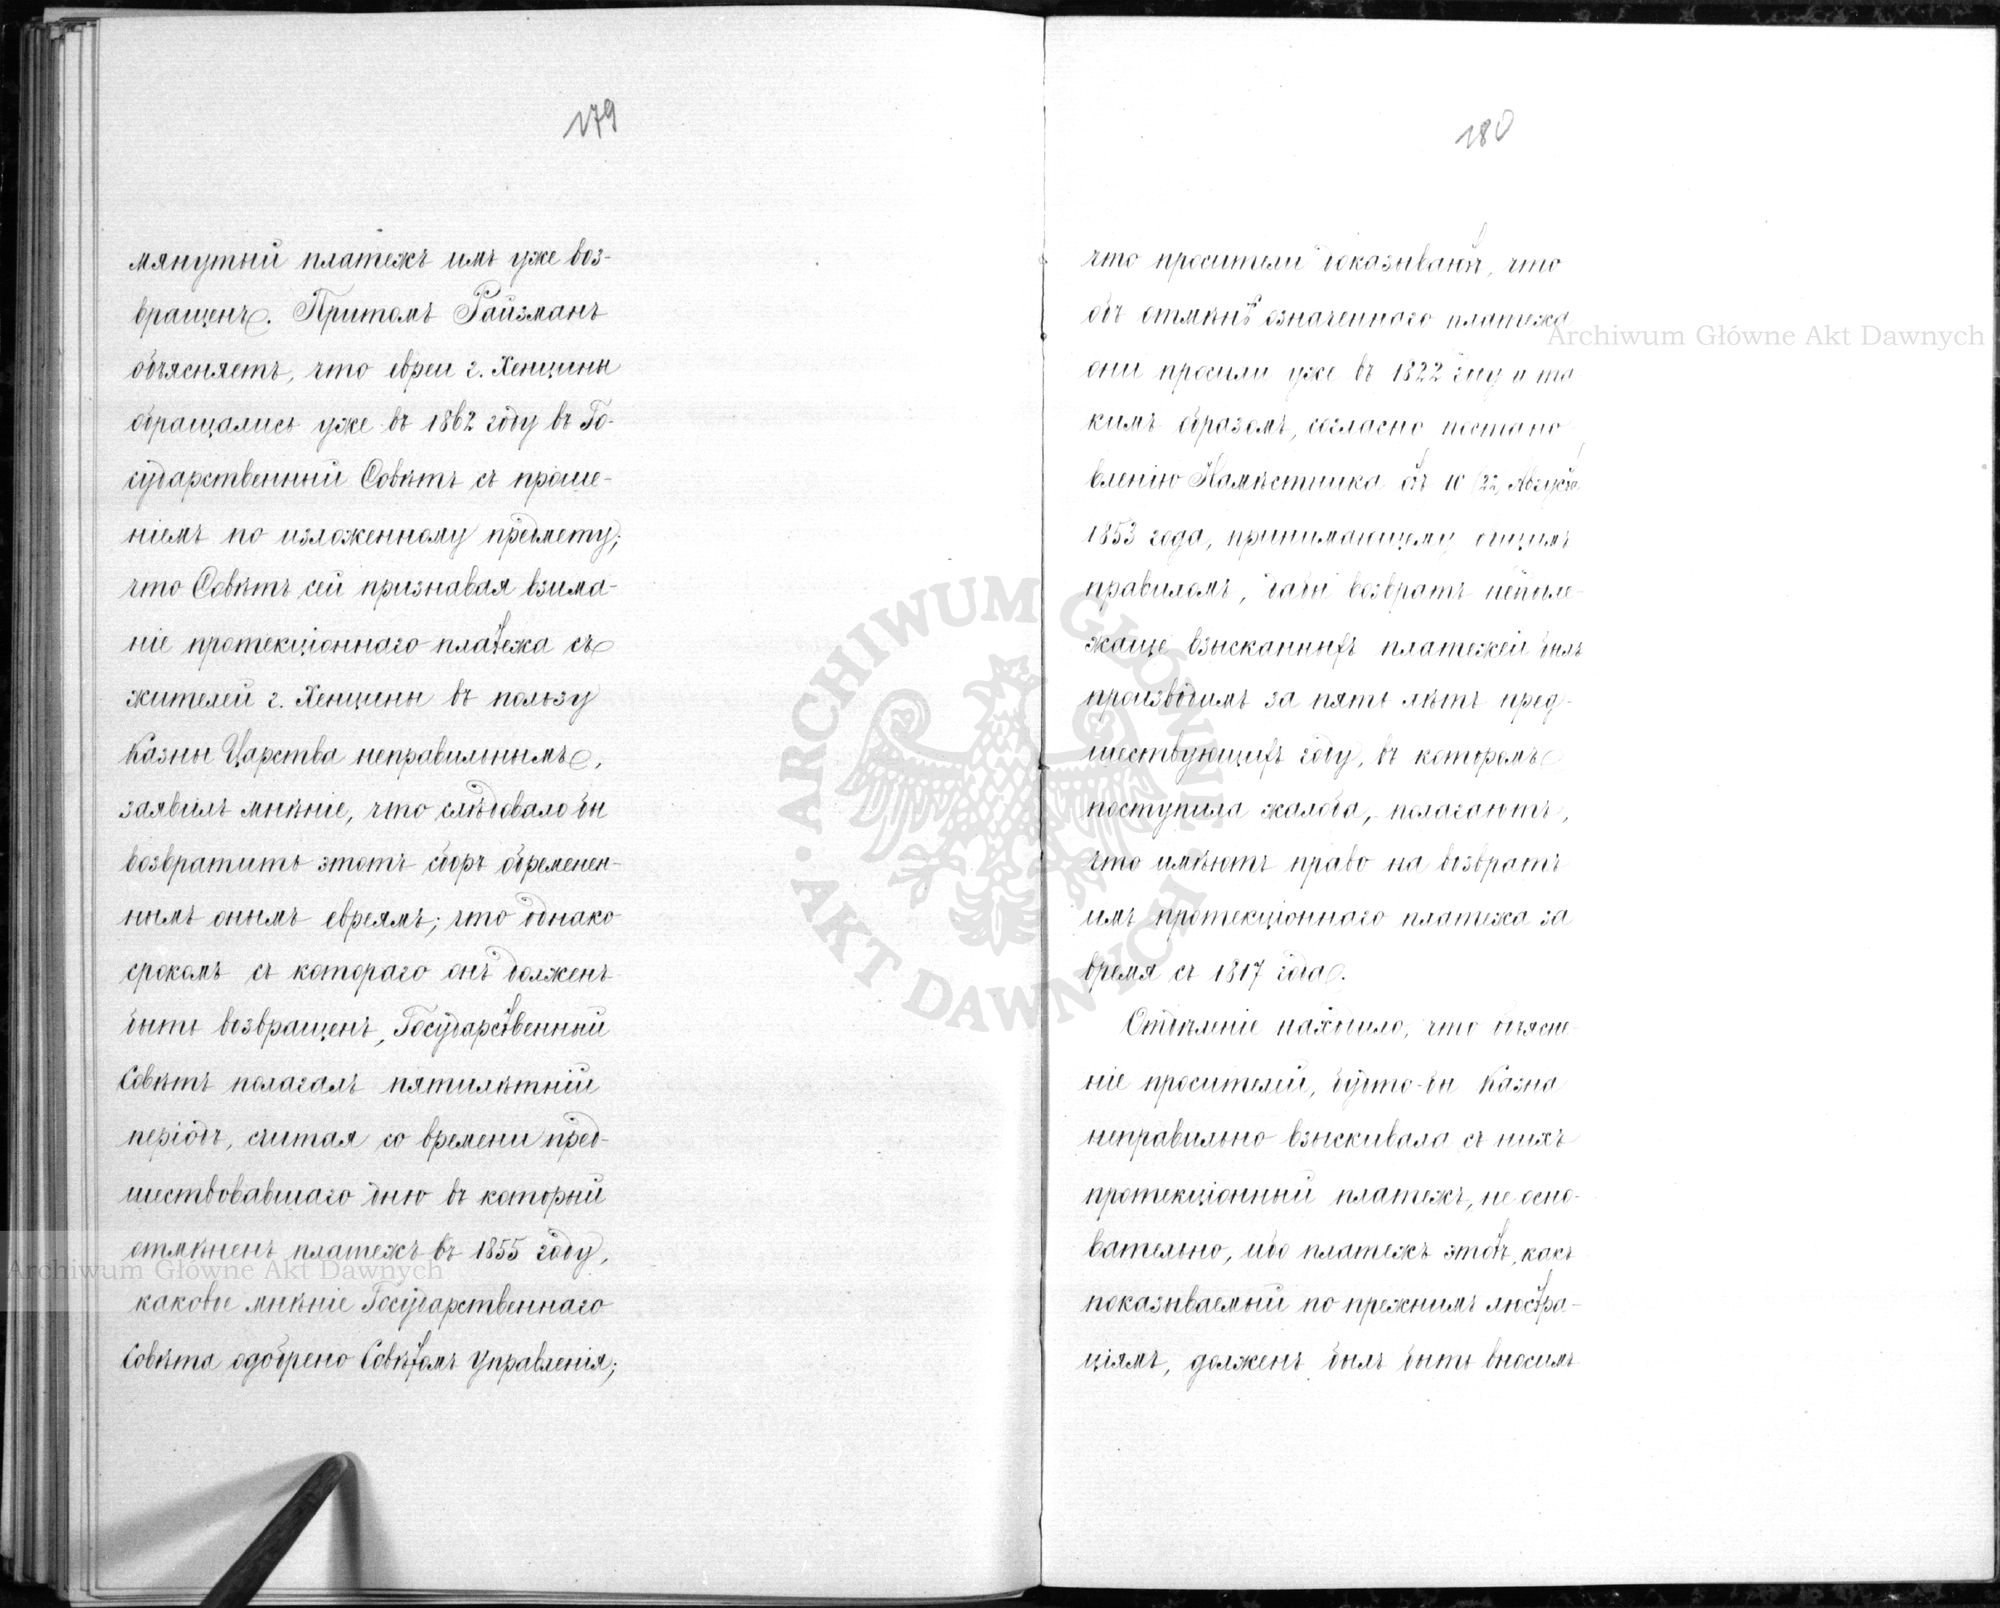 179
мянутый платежъ имъ уже воз-
вращенъ. Притомъ Райзманъ
объясняетъ, что евреи г. Хенцины
обращались уже въ 1862 году въ Го-
сударственный Совѣтъ съ проше-
ніемъ по изложенному предмету;
что Совѣтъ сей признавая взима-
ніе протекціоннаго платежа съ
жителей г. Хенцины въ пользу
Казны Царства неправильнымъ,
заявилъ мнѣніе, что слѣдовало бы
возвратить этотъ сборъ обременен-
нымъ онымъ евреямъ; что однако
срокомъ съ котораго онъ долженъ
быть возвращенъ, Государственный
Совѣтъ полагалъ пятилѣтній
періодъ, считая со времени пред-
шествовавшаго дню въ который
отмѣненъ платежъ въ 1855 году,
каковое мнѣніе Государственнаго
Совѣта одобрено Совѣтомъ Управленія;
180
что просители доказываютъ, что
объ отмѣнѣ означеннаго платежа
они просили уже въ 1822 году и та
кимъ образомъ, согласно постано
вленію Намѣстника отъ 10 (22) Августа
1853 года, принимающему общимъ
правиломъ, дабы возвратъ неподле-
жаще взысканныхъ платежей былъ
производимъ за пять лѣтъ пред-
шествующихъ году, въ которомъ
поступила жалоба, полагаютъ,
что имѣютъ право на возвратъ
имъ протекціоннаго платежа за
время съ 1817 года.
Отдѣленіе находило, что объясне-
ніе просителей, будто-бы Казна
неправильно взыскивала съ нихъ
протекціонный платежъ, не осно-
вательно, ибо платежъ этотъ, какъ
показываемый по прежнимъ люстра-
ціямъ, долженъ былъ быть вносимъ
Archiwum Główne Akt Dawnych
Archiwum Główne Akt Dawnych
ARCHIWUM GŁÓWNE • AKT DAWNYCH •